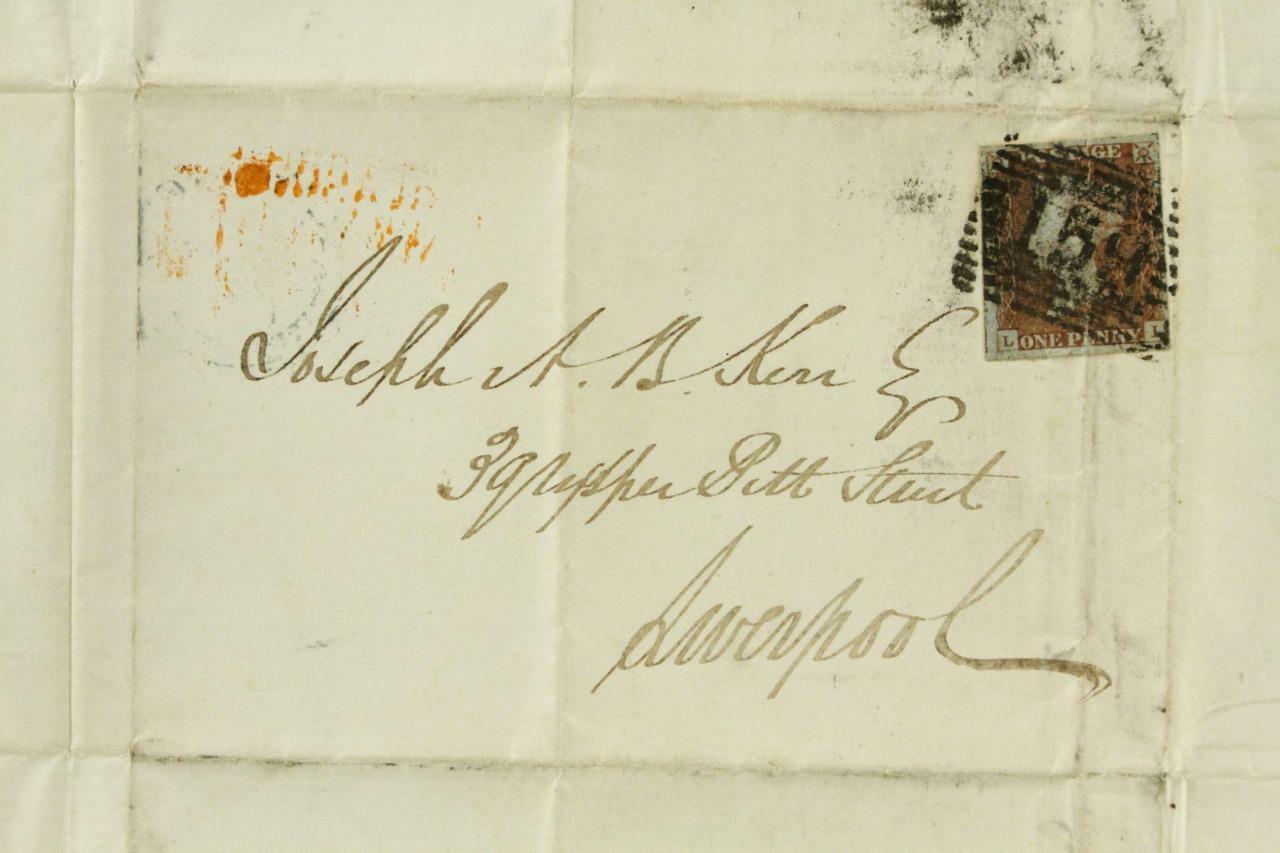 POSTAGE
L ONE PENNY L
Joseph A. B. Kerr Esq
39 Upper Pitt Street
Liverpool